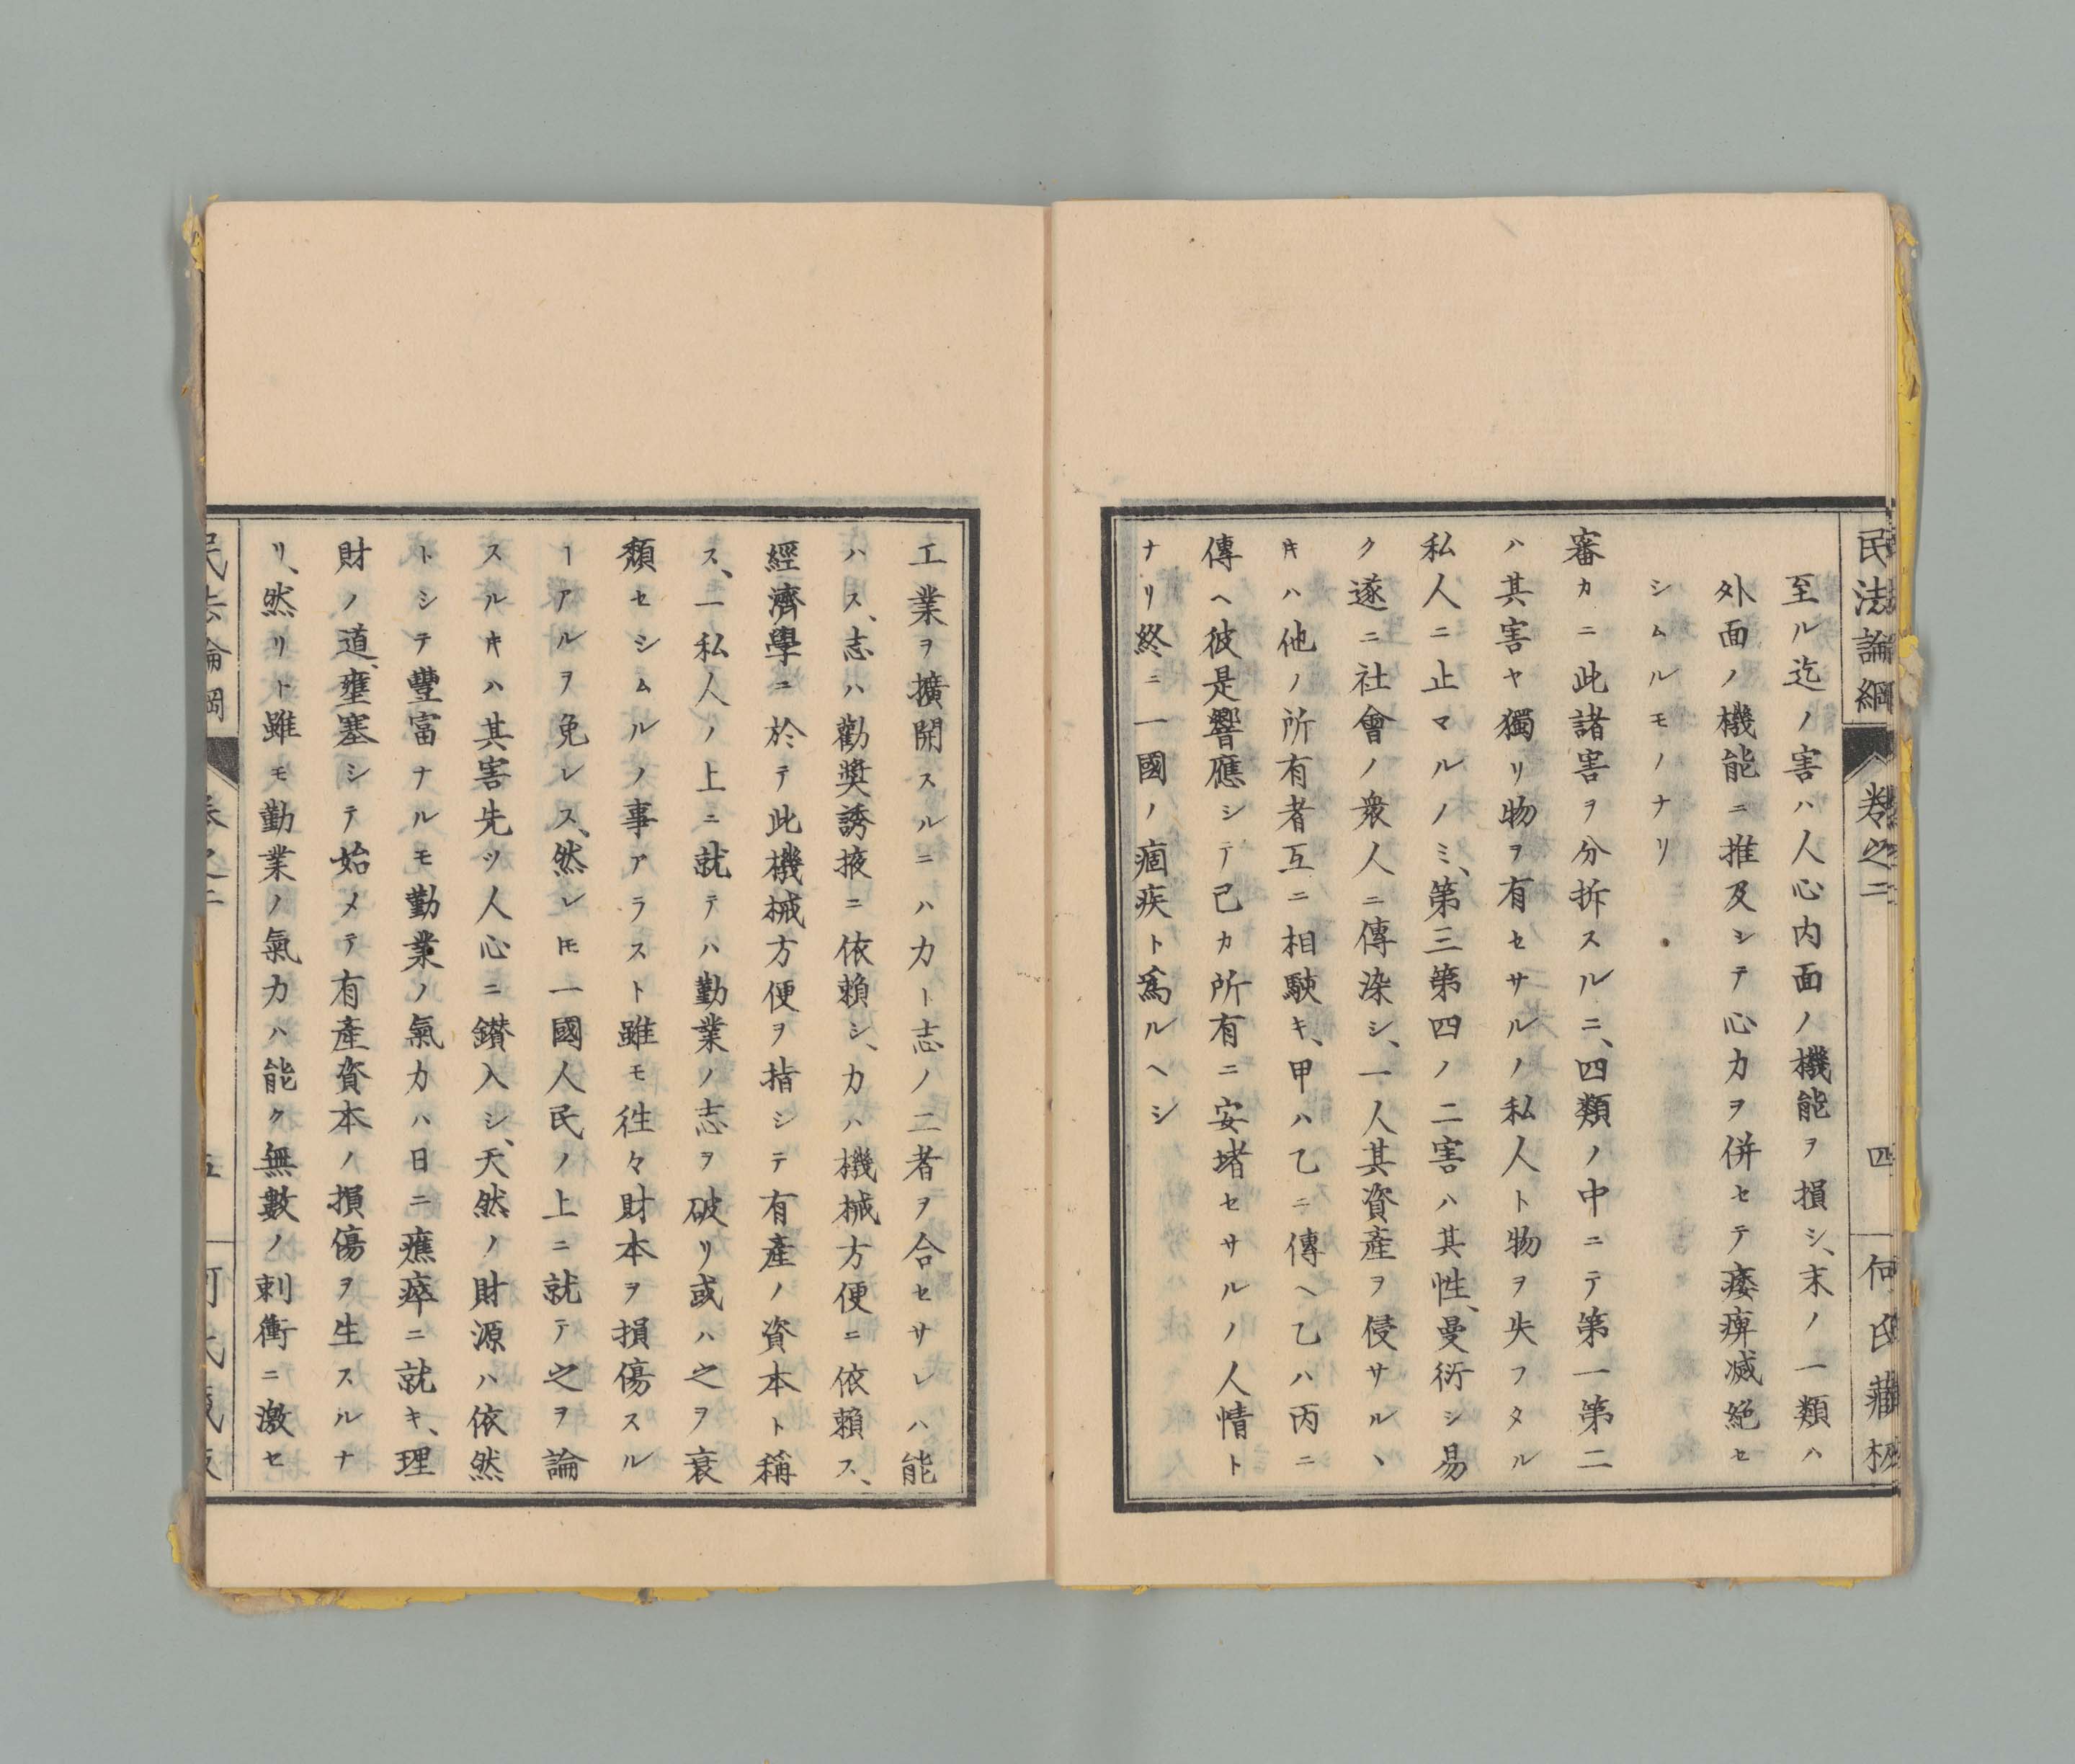 民法論綱 卷之二 四 何氏藏板
至ル迄ノ害ハ人心内面ノ機能ヲ損シ、末ノ一類ハ
外面ノ機能ニ推及シテ心力ヲ併セテ痿痺滅絶セ
シムルモノナリ
審カニ此諸害ヲ分拆スルニ、四類ノ中ニテ第一第二
ハ其害ヤ獨リ物ヲ有セサルノ私人ト物ヲ失フタル
私人ニ止マルノミ、第三第四ノ二害ハ其性、曼衍シ易
ク遂ニ社會ノ衆人ニ傳染シ、一人其資產ヲ侵サルヽ
𪜈ハ他ノ所有者互ニ相駛キ、甲ハ乙ニ傳ヘ乙ハ丙ニ
傳ヘ彼是響應シテ己カ所有ニ安堵セサルノ人情ト
ナリ終ニ一國ノ痼疾ト爲ルヘシ
工業ヲ擴開スルニハ力ト志ノ二者ヲ合セサレハ能
ハス、志ハ勸奬誘掖ニ依賴シ、力ハ機械方便ニ依賴ス、
經濟學ニ於テ此機械方便ヲ指シテ有產ノ資本ト稱
ス、一私人ノ上ニ就テハ勤業ノ志ヲ破リ或ハ之ヲ衰
頽セシムルノ事アラスト雖モ徃々財本ヲ損傷スル
ヿアルヲ免レス、然レ𪜈一國人民ノ上ニ就テ之ヲ論
スル𪜈ハ其害先ツ人心ニ鑚入シ、天然ノ財源ハ依然
トシテ豐富ナルモ勤業ノ氣力ハ日ニ癄瘁ニ就キ、理
財ノ道、壅塞シテ始メテ有產資本ノ損傷ヲ生スルナ
リ、然リト雖モ勤業ノ氣力ハ能ク無數ノ刺衝ニ激セ
民法論綱 卷之二 五 何氏藏板